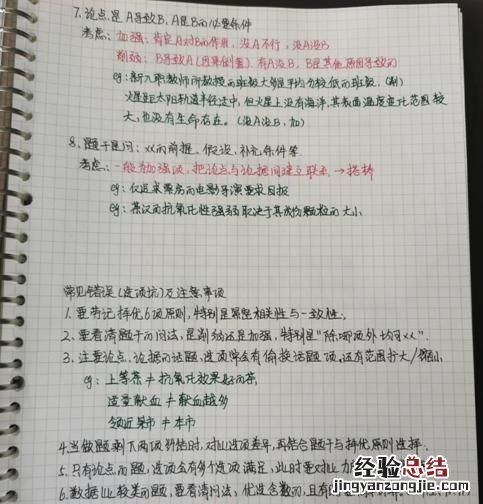 7.论点是A导致B,A是B的必要条件
考点:加强:肯定A对B的作用,没A不行,没A没B
削弱:B导致A(因果倒置),有A没B,B是其他原因导致的
eg:新入职教师所教授的班级大多是平均分较低的班级.(削)
火星距太阳轨道半径适中,但火星上没有海洋,其表面温度变化范围较
大,也没有生命存在。(没A没B,加)
8.题干是问:xx的前提、假设、补充条件等
考点:一般为加强项,把论点与论据间建立联系→搭桥
eg:仅近来票房的电影导演要求自报
eg:茶汉的抗氧化性强弱取决于其成份颗粒的大小.
常见错误(选项坑)及注意事项
1.要劳记择优6项原则,特别是紧密相关性与一致性,
2.要看清题干的问法,是削弱还是加强,特别是"除哪项外均可xx".
3.注意论点、论据的话题,选项常会有偷换话题项,还有范围扩大/缩小.
eg:上等茶≠抗氧化效果好的茶
适量献血≠献血越多
邻近果市≠本市
4.当做题剩下两项纠结时,对比选项差异,再结合题干与择优原则选择.
5.只有论点的题,选项会有多个选项满足,此时要对比力
6.数据比较类的题,要看清问法,优选含数的,且有
金昆点评
jingyanfengxiang.com